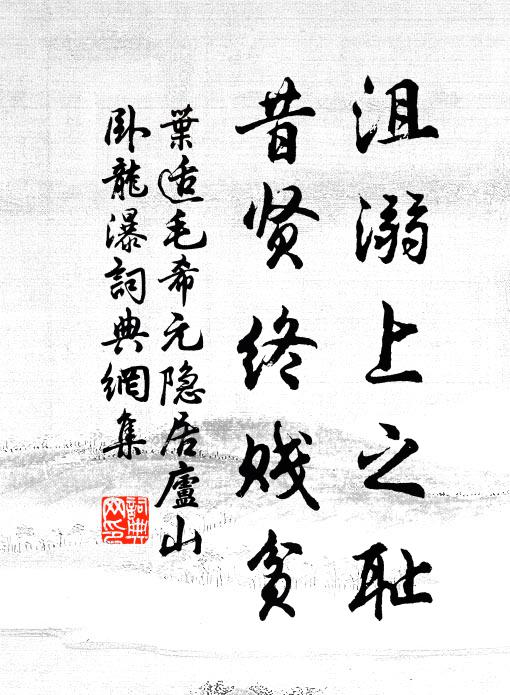 沮溺上之耻
昔贤终贱贫
葉适毛希元隐居廬山
卧龍瀑詞典網集
詞典
网印